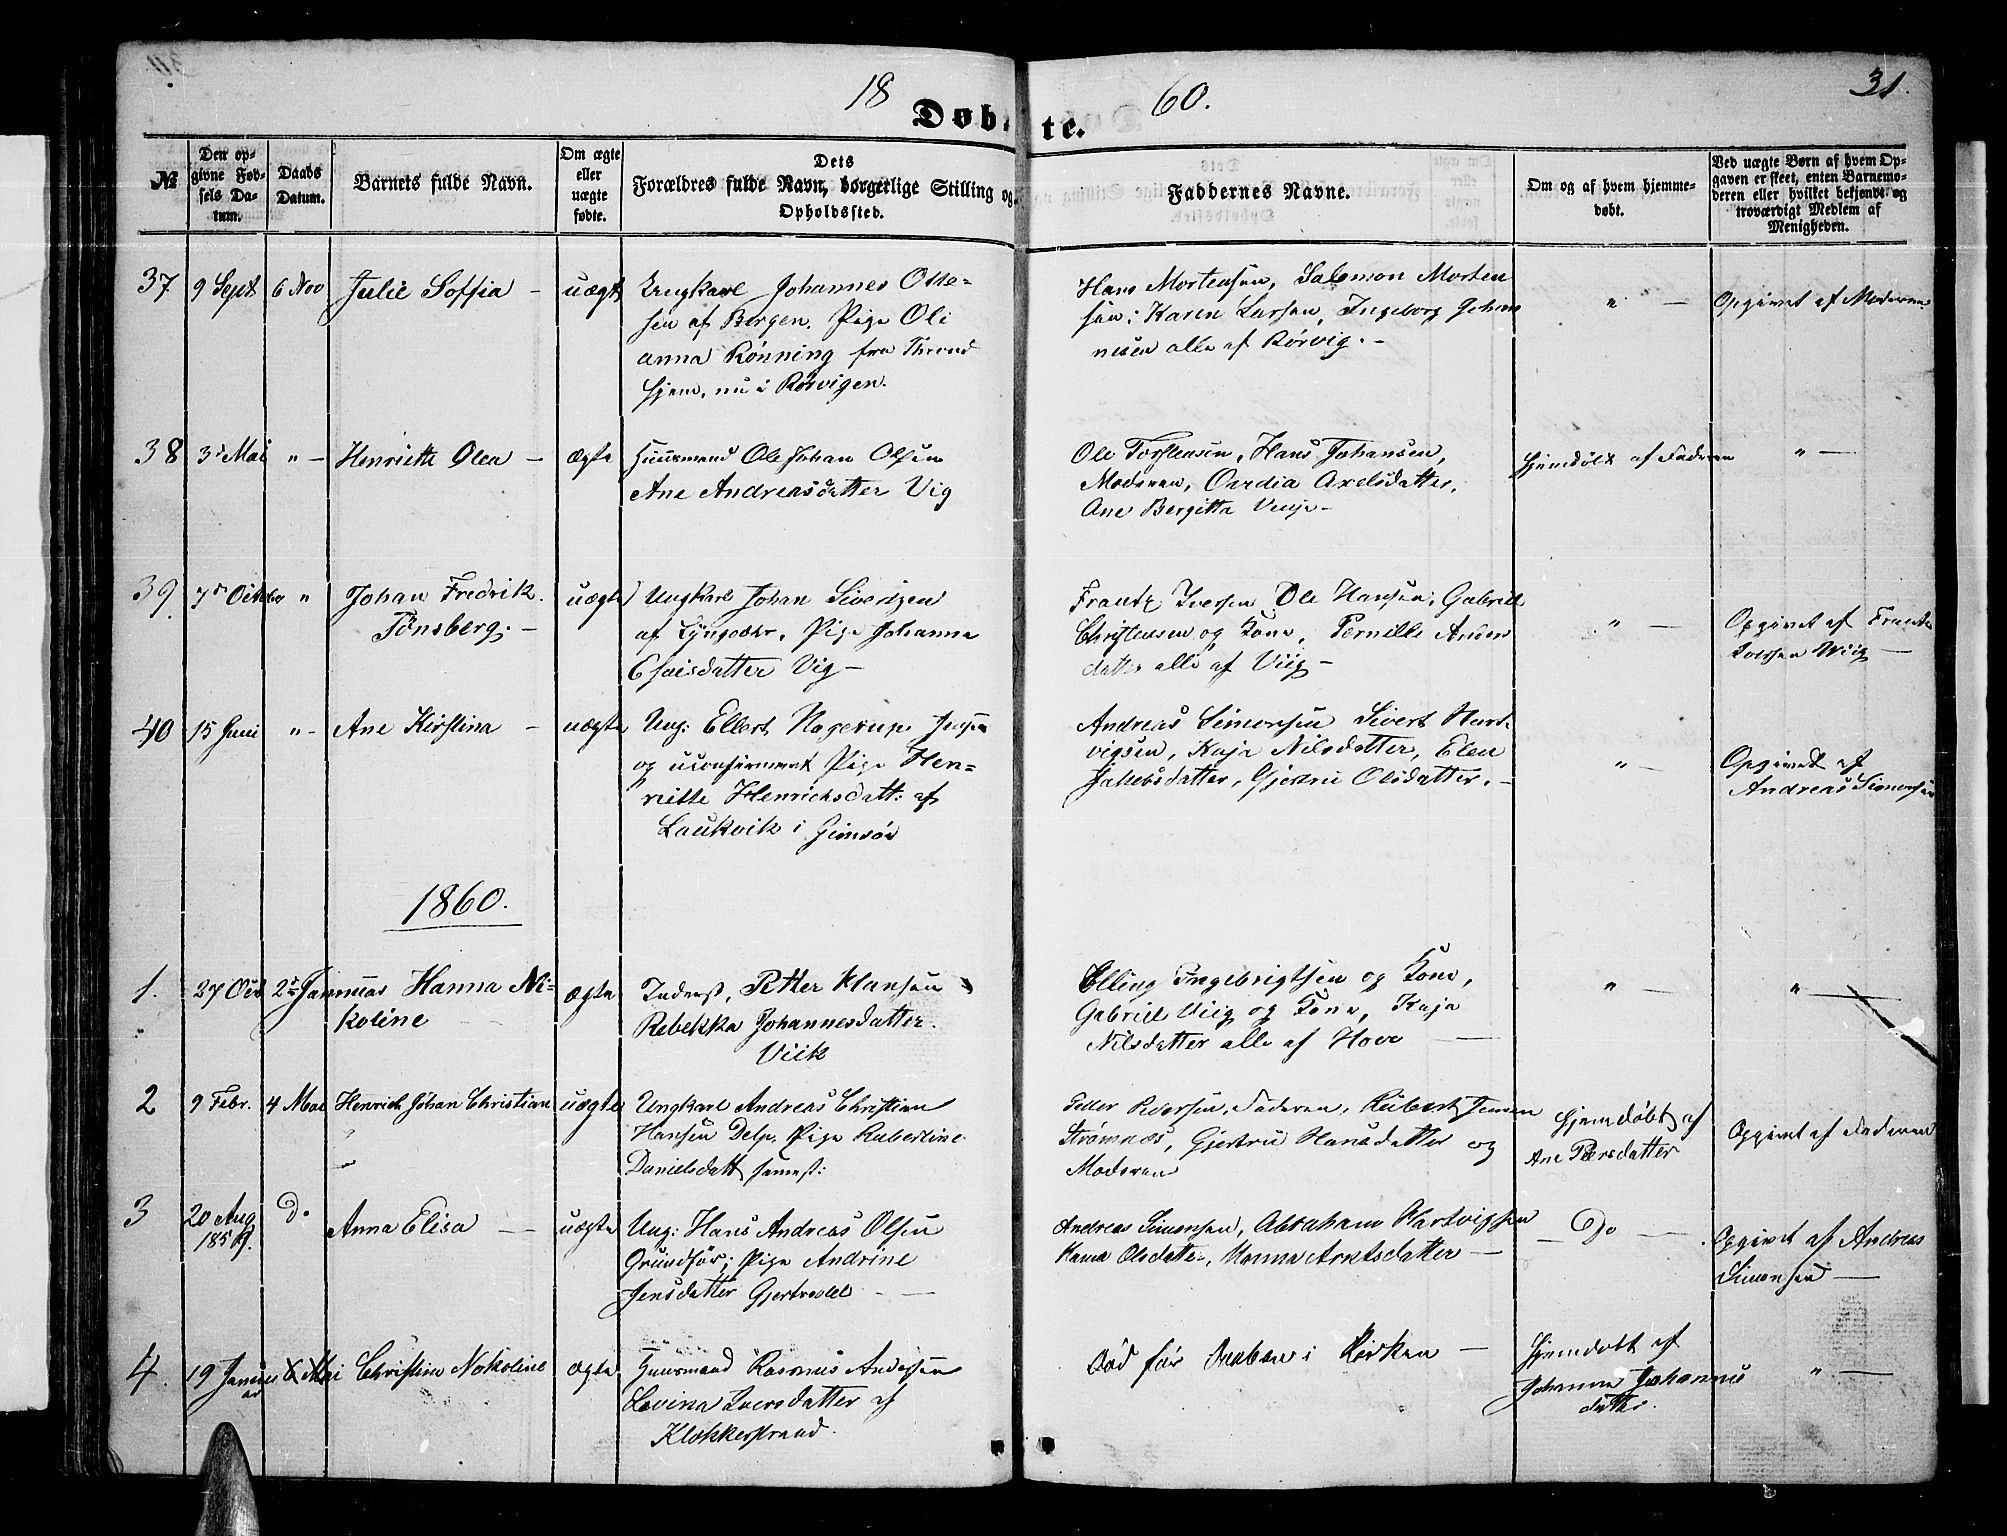 18 60. 31.
Døbte.
№
Den opgivne Fødsels Datum.
Daabs Datum.
Barnets fulde Navn.
Om ægte eller uægte fødte.
Dets Forældres fulde Navn, borgerlige Stilling og Opholdssted.
Faddernes Navne.
Om og af hvem hjemmedøbt.
Ved uægte Børn af hvem Opgaven er skeet, enten Barnemoderen eller hvilket bekjendt og troværdigt Medlem af Menigheden.
37 9 Sept 6 Nov Julie Soffia – uægte Ungkarl Johannes Otte-
sen af Bergen. Pige Oli
anna Rønning fra Thrond
hjem, nu i Rørvigen.
Hans Mortensen, Salomon Morten
sen: Karen Larsen, Ingeborg Johan
nesen alle af Rørvig. –
" – Opgivet af Moderen
38 3d Mai " – Henriette Olea – ægte Huusmand Ole Johan Olsen
Ane Andreasdatter Vig
Ole Torstensen, Hans Johansen,
Moderen, Axelsdatter,
Ane Bergitta Vig –
Hjemdøbt af Faderen " –
39. 7d Octobr " Johan Fredrik
Tønsberg. –
uægte Ungkarl Johan Sivertzen
af Lyngvær, Pige Johanna
Esaisdatter Vig –
Frantz Iversen Ole Hansen, Gabriel
Christensen og Kone, Pernille Anders
datter alle af Viig –
" – Opgivet af Frantz
Iversen Wiig –
40 15 Juni " – Ane Kirstina – uægte Ung: Ellert Hagerup
og uconfirmeret Pige Hen-
riette Henrichsdatt: af
Laukvik i Gimsøe
Andreas Simonsen Sivert Hart-
vigsen, Kaja Nilsdatter, Elen
Jakobsdatter, Gjertru Olsdatter. –
" – Opgivet af
Andreas Simonsen
1860.
1. 27 Oct 2d Januar Hanna Ni-
koline
ægte Inderst, Petter Hansen
Rebekka Johannesdatter.
Viik
Elling Ingebrigtsen og Kone,
Gabriel Viig og Kone, Kaja
Nilsdatter alle af Hove –
" – " –
2 9 Febr. 4 Mai Henrich Johan Christian uægte Ungkarl Andreas Christian
Hansen Delp, Pige Rubertine
Danielsdatt samest:
Petter Pedersen, Faderen, Rubert Jensen
Strømnæs, Gjertru Hansdatter og
Moderen
Hjemdøbt af
Ane Pedersdatter
Opgivet af Faderen
3 20 Aug
1859.
Do Anna Elisa – uægte Ung: Hans Andreas Olsen
Grundfør; Pige Andrine
Jensdatter Gjertrudl –
Andreas Simonsen, Abraham Hartvigsen
Hanna Olsdatter, Hanna Arntsdatter –
– Do – Opgivet af Andreas
Simonsen –
4. 19 Januar Mai Christine Nokoline ægte Huusmand Rasmus Andersen
Lovina Iversdatter af
Klokkerstrand.
Død før Daaben i Kirken –
Hjemdøbt af
Johanna Johannes
datter.
" –